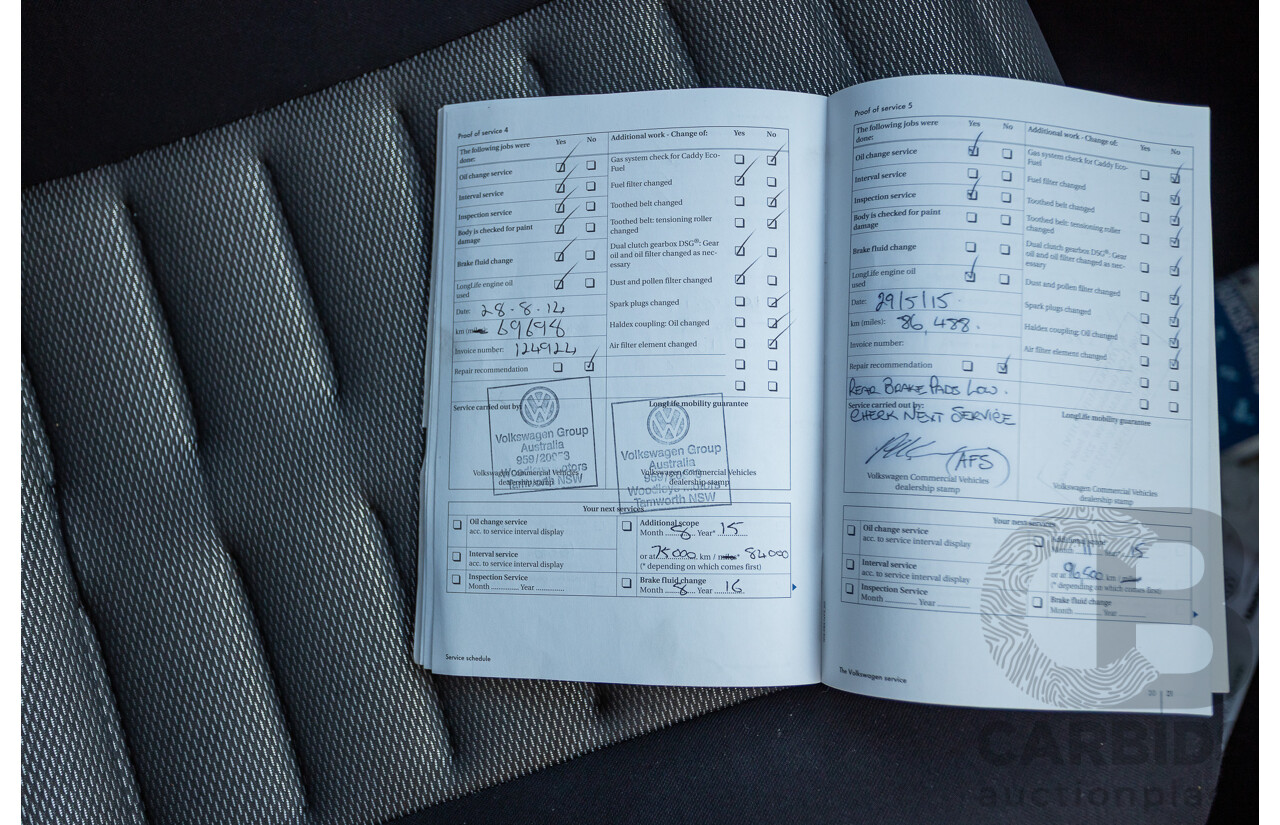 Proof of service 4
The following jobs were done: Yes No
Oil change service
Interval service
Inspection service
Body is checked for paint damage
Brake fluid change
LongLife engine oil used
Date: 28.8.14
km (miles): 69698
Invoice number: 124924
Repair recommendation
Additional work - Change of: Yes No
Gas system check for Caddy Eco-
Fuel
Fuel filter changed
Toothed belt changed
Toothed belt: tensioning roller
changed
Dual clutch gearbox DSG®: Gear
oil and oil filter changed as nec-
essary
Dust and pollen filter changed
Spark plugs changed
Haldex coupling: Oil changed
Air filter element changed
Service carried out by:
Volkswagen Group
Australia
Tamworth NSW
Volkswagen Commercial Vehicles
dealership stamp
LongLife mobility guarantee
Volkswagen Group
Australia
Woodleys Motors
Tamworth NSW
Volkswagen Commercial Vehicles
dealership stamp
Your next services
Oil change service
acc. to service interval display
Interval service
acc. to service interval display
Inspection Service
Month ............ Year ............
Additional scope
Month 8 Year* 15
or at 75000 km / miles* 84000
(* depending on which comes first)
Brake fluid change
Month 8 Year 16
Service schedule
Proof of service 5
The following jobs were
done: Yes No
Oil change service
Interval service
Inspection service
Body is checked for paint
damage
Brake fluid change
LongLife engine oil
used
Date: 29/5/15.
km (miles): 86,488.
Invoice number:
Repair recommendation
REAR BRAKE PADS LOW.
Service carried out by:
CHECK NEXT SERVICE
AFS
Volkswagen Commercial Vehicles
dealership stamp
Additional work - Change of: Yes No
Gas system check for Caddy Eco-
Fuel
Fuel filter changed
Toothed belt changed
Toothed belt: tensioning roller
changed
Dual clutch gearbox DSG®: Gear
oil and oil filter changed as nec-
essary
Dust and pollen filter changed
Spark plugs changed
Haldex coupling: Oil changed
Air filter element changed
LongLife mobility guarantee
Volkswagen Commercial Vehicles
dealership stamp
Your next services
Oil change service
acc. to service interval display
Interval service
acc. to service interval display
Inspection Service
Month ............ Year ............
Additional scope
Month Year 15
or at km / miles*
(* depending on which comes first)
Brake fluid change
Month ............ Year ............
The Volkswagen service
21
CARBID
auctionpla